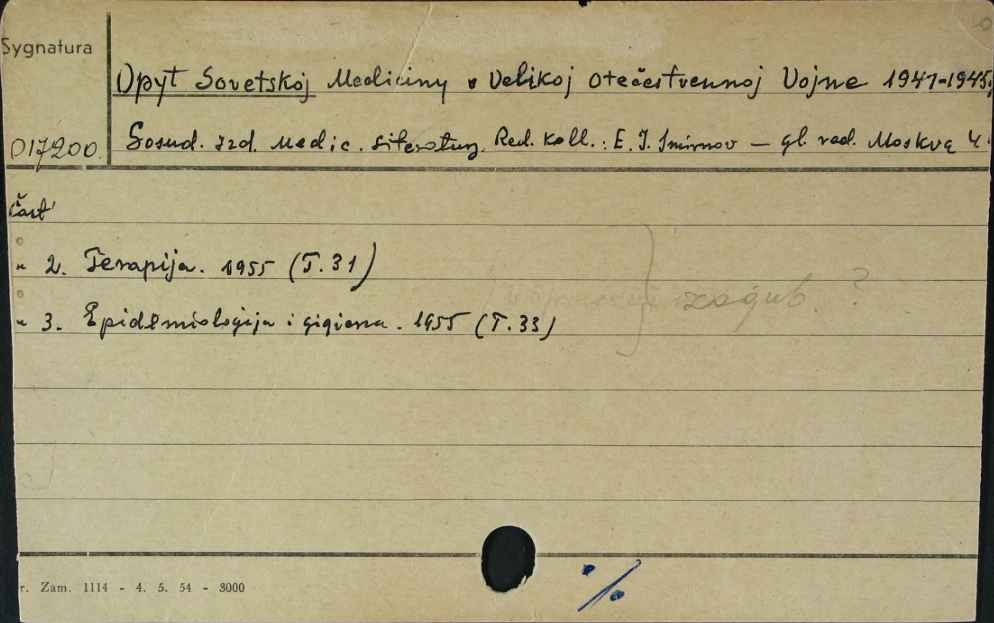 Sygnatura
Opyt Sovetskoj Mediciny v Velikoj Otečestvennoj Vojne 1941-1945.
017200. Gosud. Izd. Medic. Literatury. Red. Koll.: E. I. Smirnov — gl. red. Moskva 4.
část'
" 2. Terapija. 1955 (T. 31)
zagub ?
" 3. Epidemiologija i gigiena. 1955 (T. 33)
r. Zam. 1114 - 4. 5. 54 - 3000
%